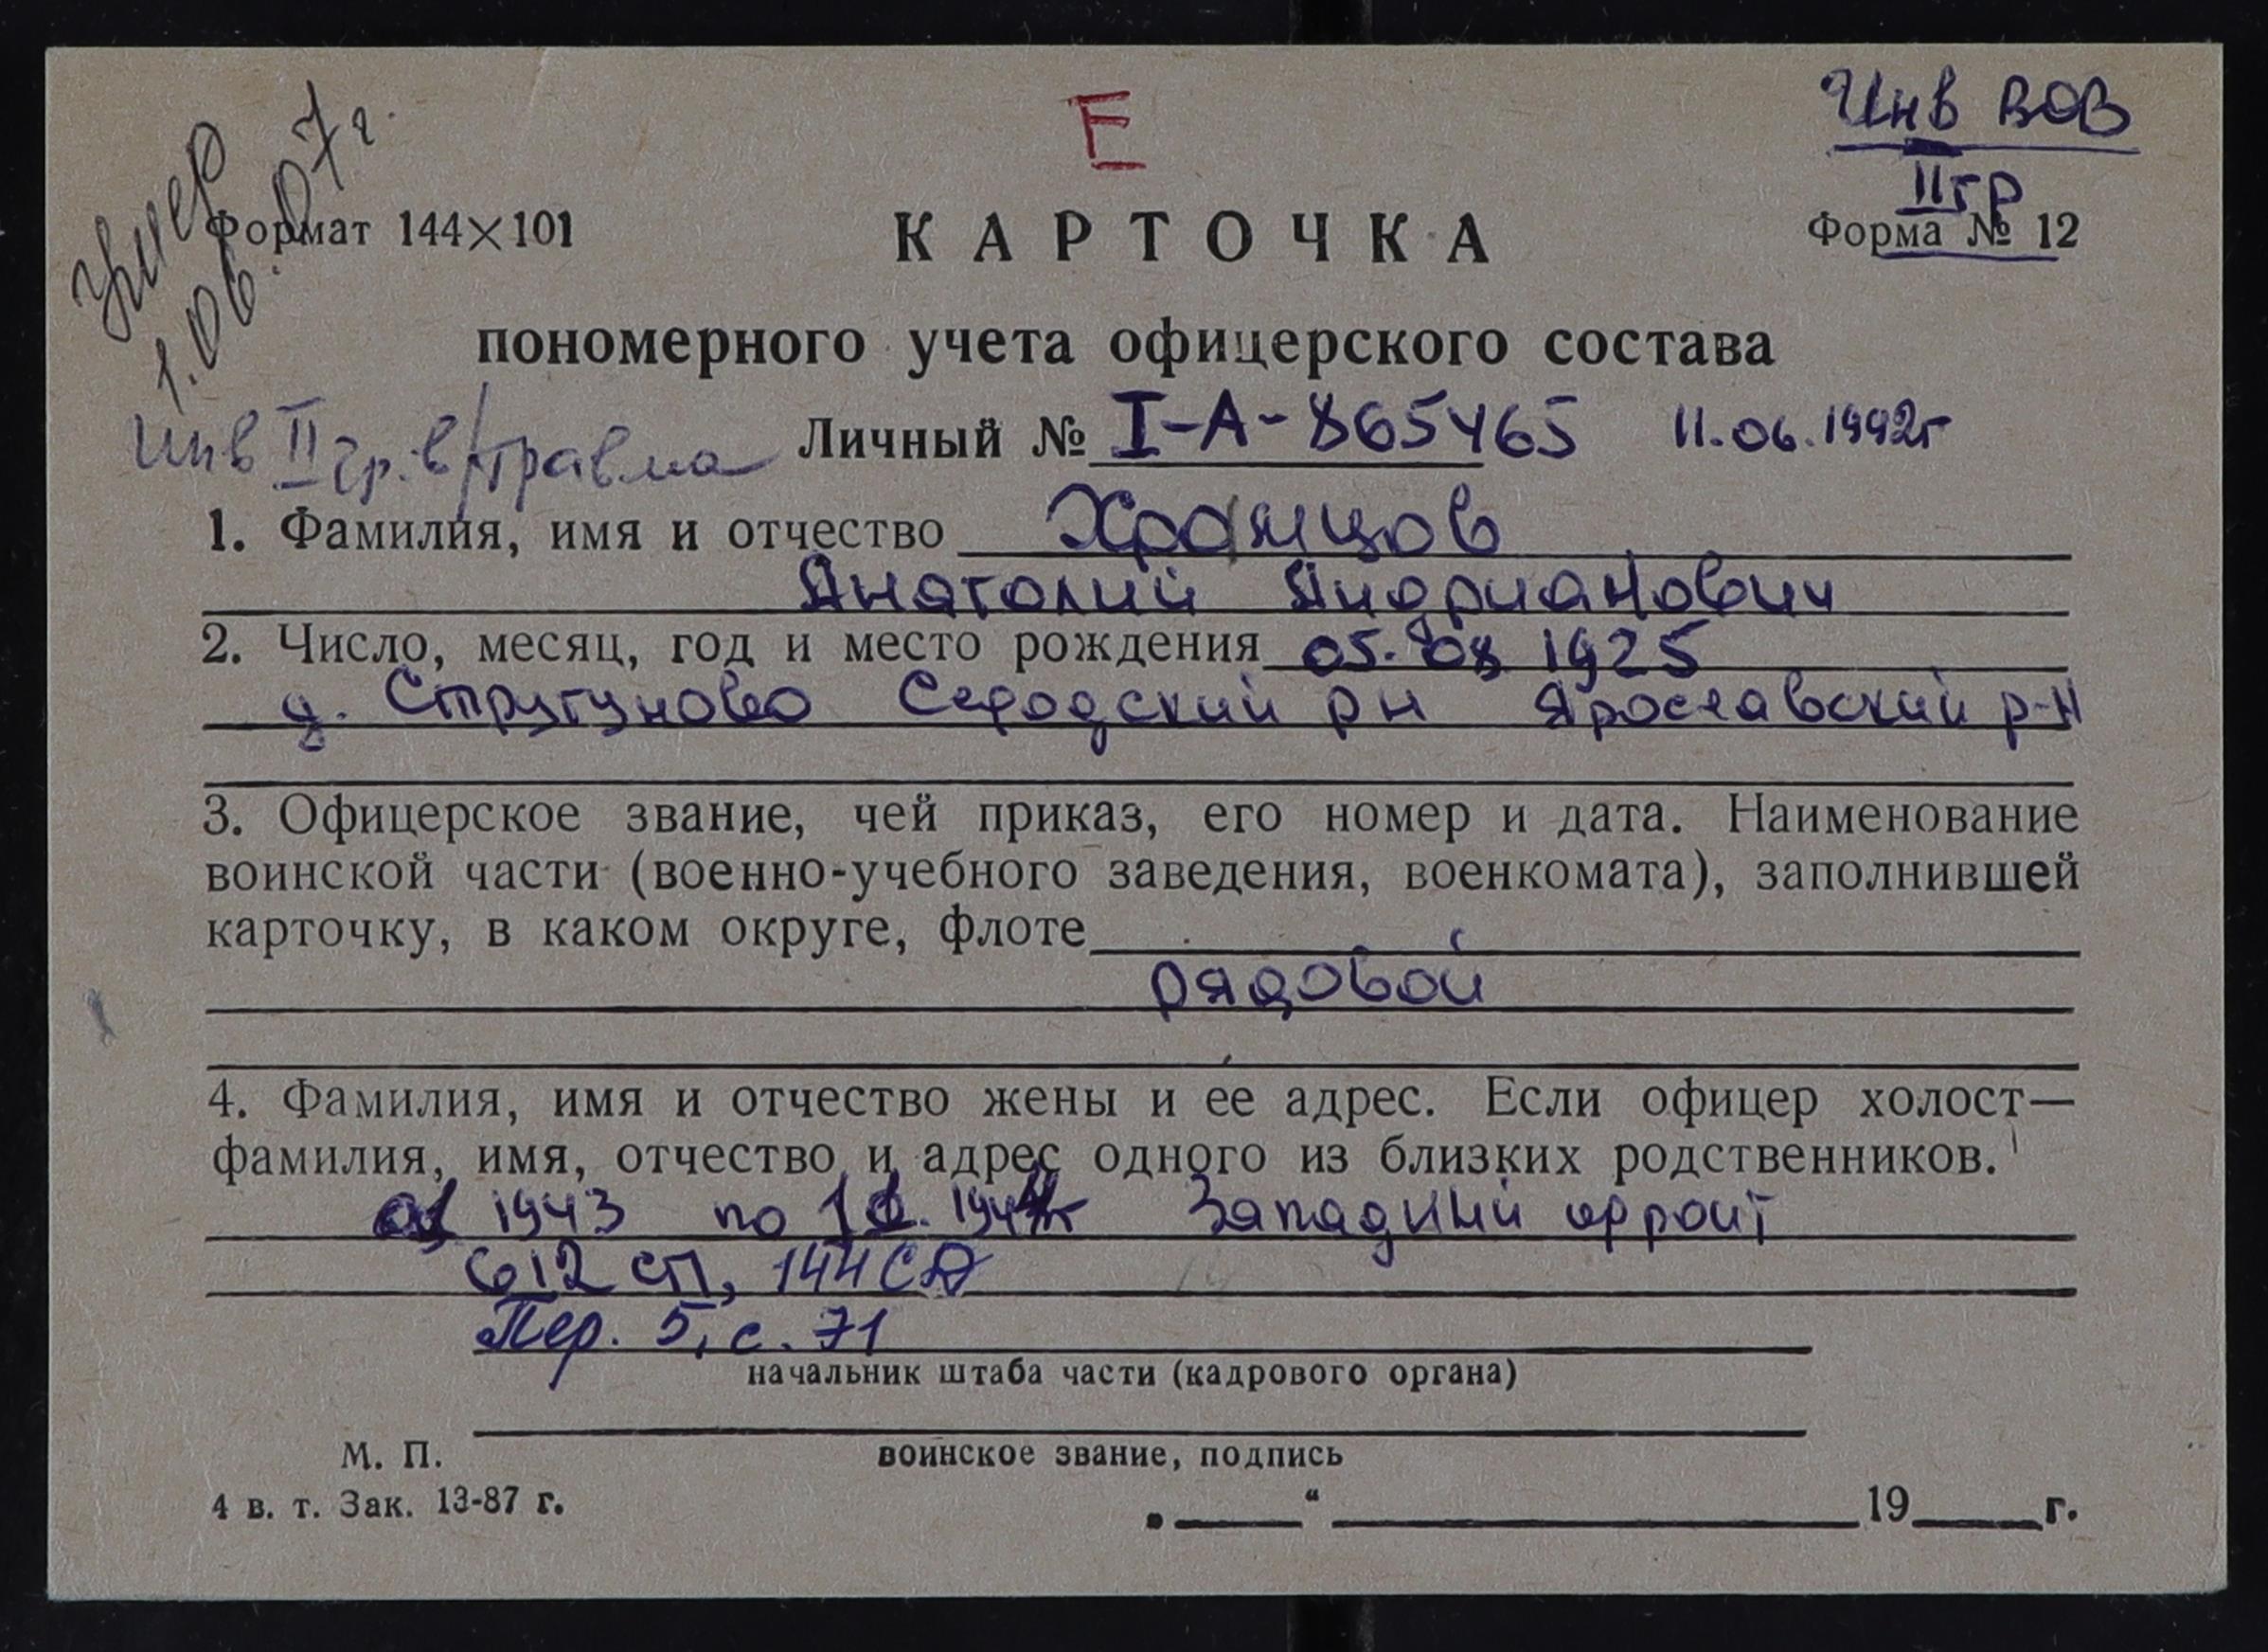 Е
Инв ВОВ
II гр
Умер
1.06.07г.
Формат 144×101
КАРТОЧКА
Форма № 12
пономерного учета офицерского состава
Инв II гр. в/травма
Личный № I-А-865465 11.06.1992г
1. Фамилия, имя и отчество Храмцов
Анатолий Андрианович
2. Число, месяц, год и место рождения 05.08 1925
д. Стругуново Середский рн Ярославский р-н
3. Офицерское звание, чей приказ, его номер и дата. Наименование
воинской части (военно-учебного заведения, военкомата), заполнившей
карточку, в каком округе, флоте
рядовой
4. Фамилия, имя и отчество жены и ее адрес. Если офицер холост—
фамилия, имя, отчество и адрес одного из близких родственников.
1943 по 1944г Западный фронт
612 сп, 144 СД
Пер. 5, с. 71
начальник штаба части (кадрового органа)
М. П.
воинское звание, подпись
4 в. т. Зак. 13-87 г.
„ “ 19 г.